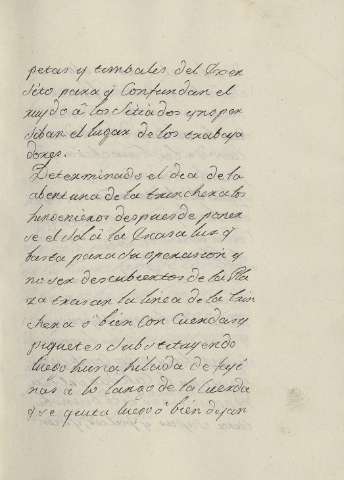 petas y timbales del Exer
sito para q̃ Confundan el
ruydo â los sitiados y no per
siban el lugar de los trabaja
dores.
Determinado el dia de la
abertura de la trinchera los
Hingenieros despues de poner
se el sol â la
basta para su operasion y
no ser descubiertos de la Pla
za trasan la linea de la trin
chera ô bien Con Cuerdas y
piquetes substituyendo
luego huna hilada de faji
nas â lo largo de la Cuerda
que quita luego ô bien dejan